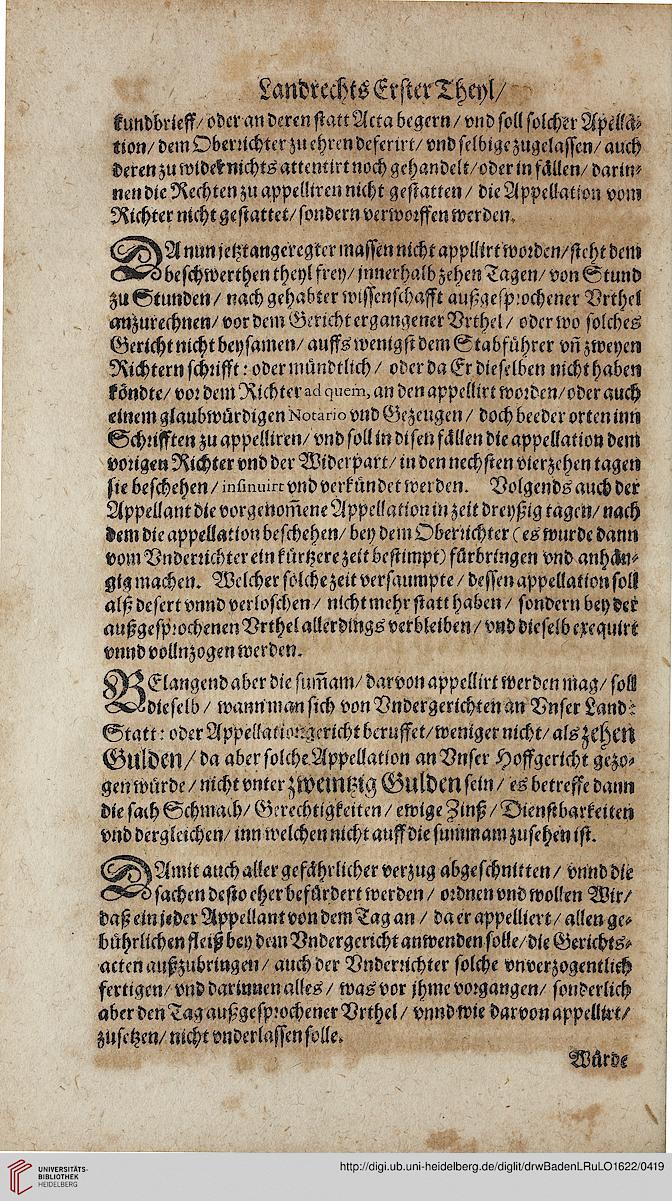 Landrechts Erster Theyl/
kundbrieff/ oder an deren statt Acta begern/ vnd soll solcher Apella-
tion/ dem Oberrichter zu ehren deferirt/ vnd selbige zugelassen/ auch
deren zu wider nichts attentirt noch gehandelt/ oder in fällen/ darin-
nen die Rechten zu appelliren nicht gestatten/ die Appellation vom
Richter nicht gestattet/ sondern verworffen werden.
DA nun jetzt angeregter massen nicht appllirt worden/ steht dem
beschwerthen theyl frey/ jnnerhalb zehen Tagen/ von Stund
zu Stunden/ nach gehabter wissenschafft außgesprochener Vrthel
anzurechnen/ vor dem Gericht ergangener Vrthel/ oder wo solches
Gericht nicht beysamen/ auffs wenigst dem Stabführer vñ zweyen
Richtern schrifft: oder mündtlich/ oder da Er dieselben nicht haben
köndte/ vor dem Richter ad quem, an den appellirt worden/ oder auch
einem glaubwürdigen Notario vnd Gezeugen/ doch beeder orten inn
Schrifften zu appelliren/ vnd soll in disen fällen die appellation dem
vorigen Richter vnd der Widerpart/ in den nechsten vierzehen tagen
sie beschehen/ insinuirt vnd verkündet werden. Volgends auch der
Appellant die vorgenom̃ene Appellation in zeit dreyßig tagen/ nach
dem die appellation beschehen/ bey dem Oberrichter (es wurde dann
vom Vnderrichter ein kürtzere zeit bestimpt) fürbringen vnd anhän-
gig machen. Welcher solche zeit versaumpte/ dessen appellation soll
alß desert vnnd verloschen/ nicht mehr statt haben/ sondern bey der
außgesprochenen Vrthel allerdings verbleiben/ vnd dieselb exequirt
vnnd vollnzogen werden.
BElangend aber die sum̃am/ darvon appellirt werden mag/ soll
dieselb/ wann man sich von Vndergerichten an Vnser Land:
Statt: oder Appellationgericht beruffet/ weniger nicht/ als zehen
Gulden/ da aber solche Appellation an Vnser Hoffgericht gezo-
gen würde/ nicht vnter zweintzig Gulden sein/ es betreffe dann
die sach Schmach/ Gerechtigkeiten/ ewige Zinß/ Dienstbarkeiten
vnd dergleichen/ inn welchen nicht auff die summam zusehen ist.
DAmit auch aller gefährlicher verzug abgeschnitten/ vnnd die
sachen desto eher befürdert werden/ ordnen vnd wollen Wir/
daß ein jeder Appellant von dem Tag an/ da er appelliert/ allen ge-
bührlichen fleiß bey dem Vndergericht anwenden solle/ die Gerichts-
acten außzubringen/ auch der Vnderrichter solche vnverzogentlich
fertigen/ vnd darinnen alles/ was vor jhme vorgangen/ sonderlich
aber den Tag außgesprochener Vrthel/ vnnd wie darvon appellirt/
zusetzen/ nicht vnderlassen solle.
Würde
UNIVERSITÄTS-
BIBLIOTHEK
HEIDELBERG
http://digi.ub.uni-heidelberg.de/diglit/drwBadenLRuLO1622/0419